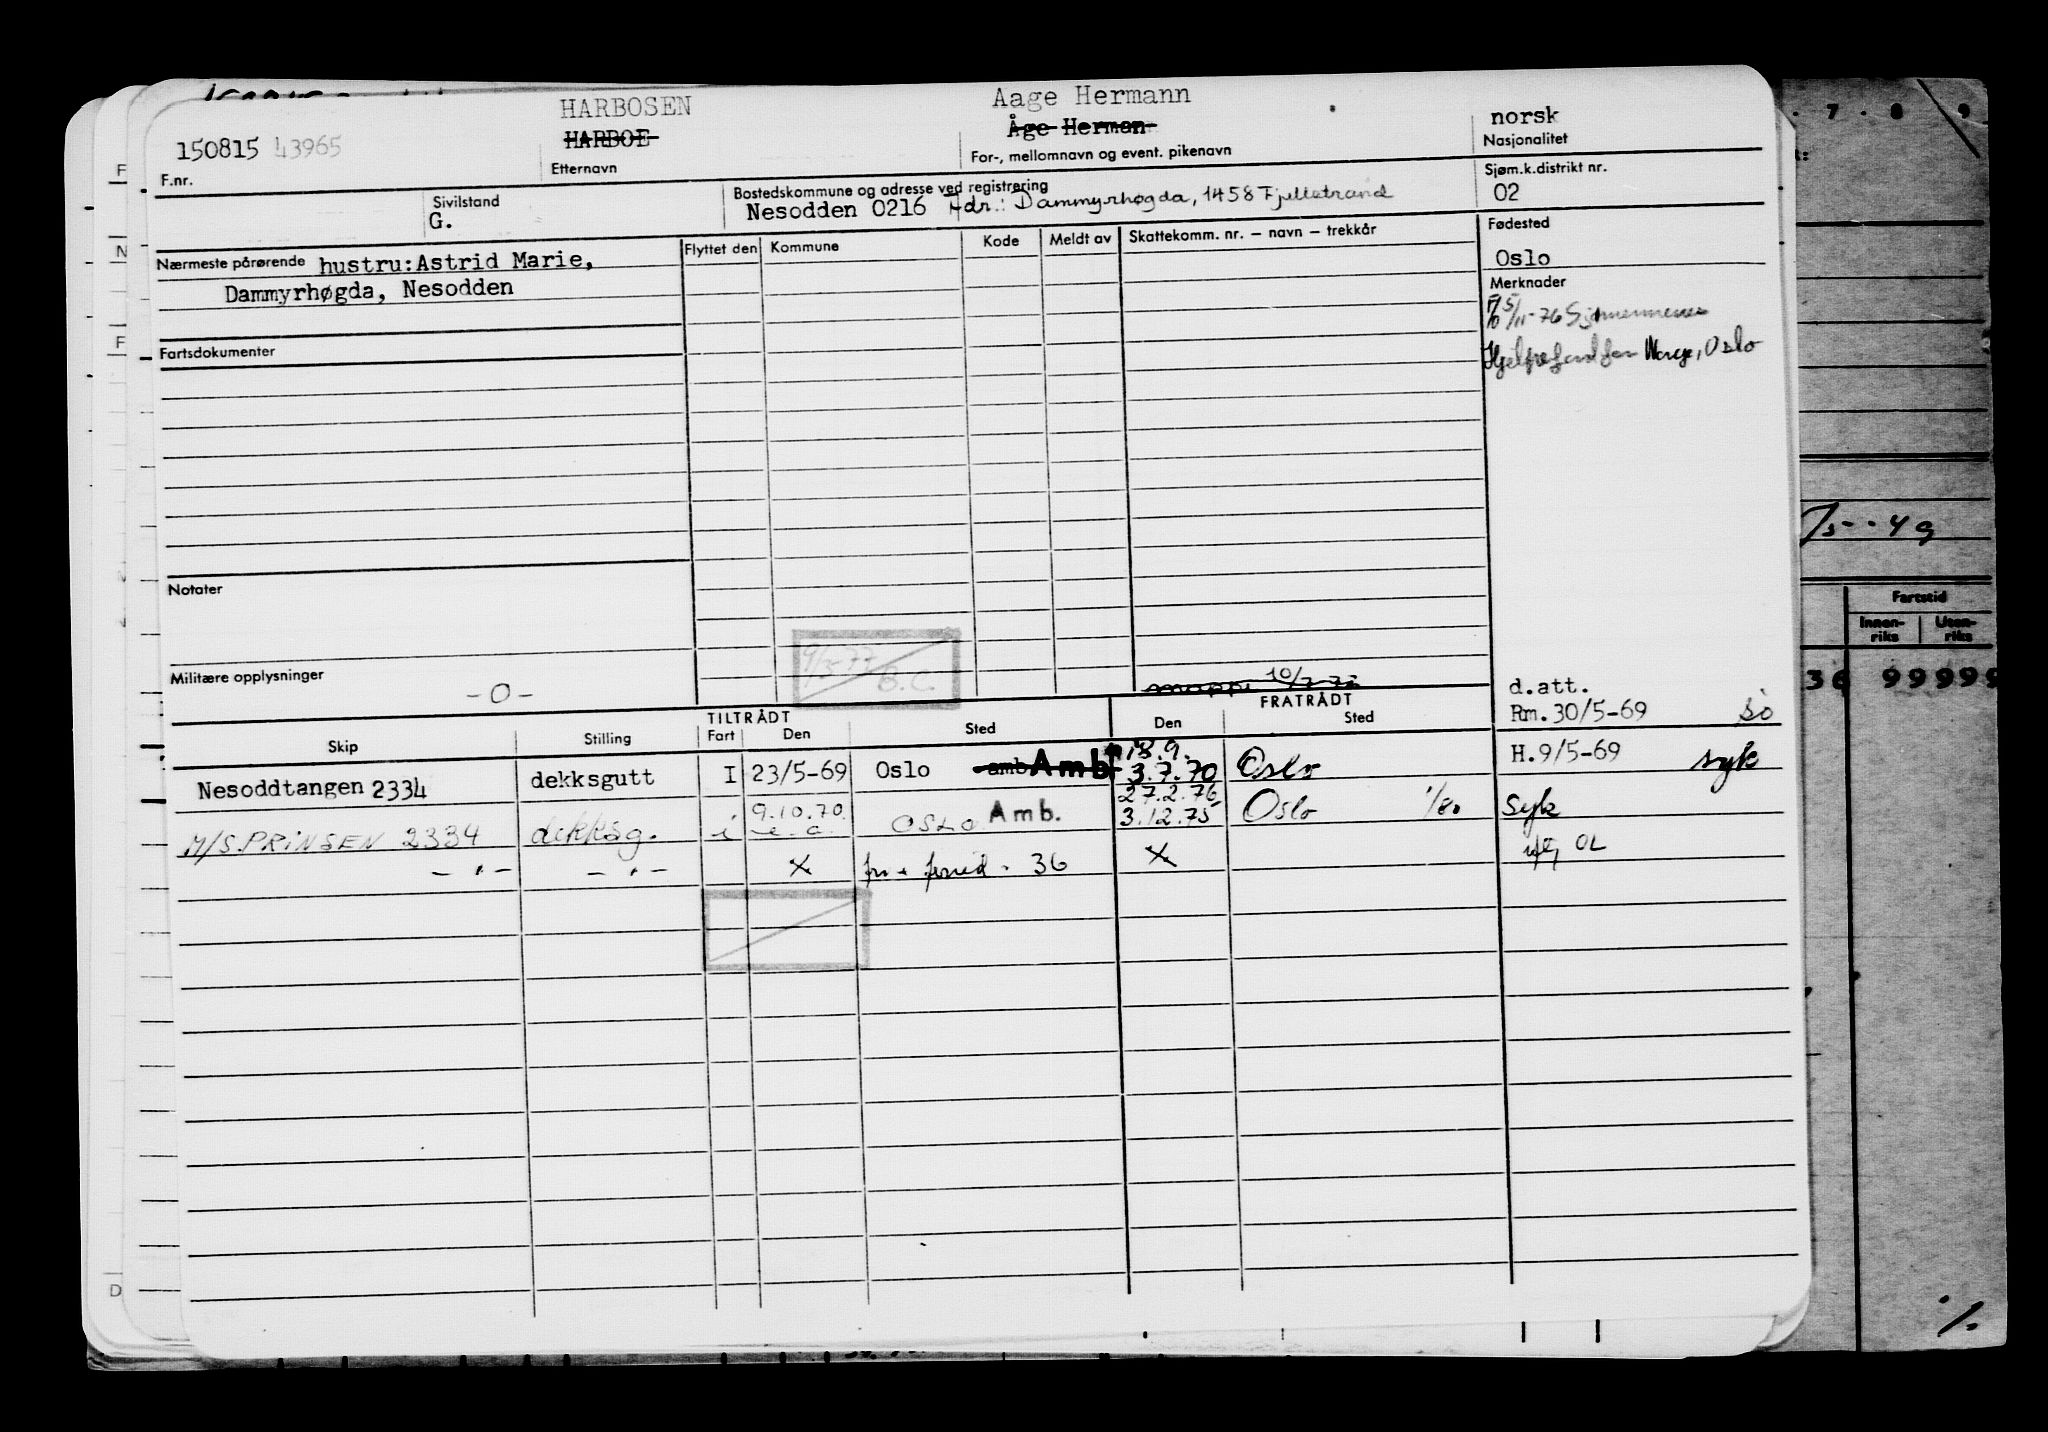 HARBOSEN Aage Hermann
150815 43965 HARBOE Åge Herman norsk
F.nr. Etternavn For-, mellomnavn og event. pikenavn Nasjonalitet
Sivilstand Bostedskommune og adresse ved registrering Sjøm.k.distrikt nr.
G. Nesodden 0216 Adr.: Dammyrhøgda, 1458 Fjellstrand 02
Nærmeste pårørende hustru: Astrid Marie, Flyttet den Kommune Kode Meldt av Skattekomm. nr. – navn – trekkår Fødested
Dammyrhøgda, Nesodden Oslo
Merknader
5/11-76 Sjømennenes
Hjelpefond for Norge, Oslo
Fartsdokumenter
Notater
9/5-77 B.C.
Militære opplysninger -0- 10/7-72
d.att.
Rm. 30/5-69 sö
TILTRÅDT FRATRÅDT
Skip Stilling Fart Den Sted Den Sted
Nesoddtangen 2334 dekksgutt I 23/5-69 Oslo amb Amb 18.9. 3.7.70 Oslo H.9/5-69 syk
M/S. PRINSEN 2334 dekksg. i 9.10.70. OSLO Amb. 27.2.76 3.12.75 Oslo 1/80 Syk
- " - - " - X 36 X OL
7 8 9
/5--49
Fartstid
Innen-riks Uten-riks
36 99999
F
N
F
D